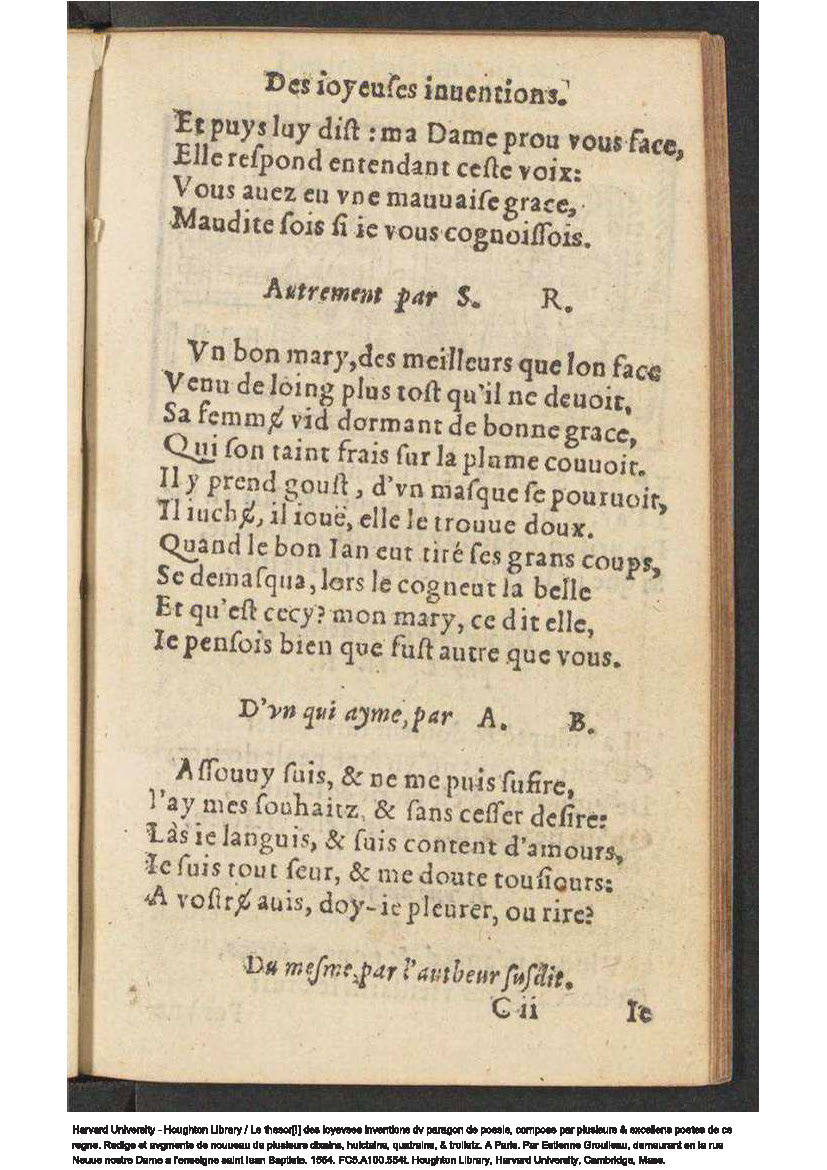 Des ioyeuſes inuentions.
Et puys luy diſt : ma Dame prou vous face,
Elle reſpond entendant ceſte voix:
Vous auez eu vne mauuaiſe grace,
Maudite ſois ſi ie vous cognoiſſois.
Autrement par S. R.
Vn bon mary, des meilleurs que lon face
Venu de loing plus toſt qu'il ne deuoit,
Sa femmɇ vid dormant de bonne grace,
Qui ſon taint frais ſur la plume couuoit.
Il y prend gouſt , d'vn maſque ſe pouruoit,
Il iuchɇ, il iouë, elle le trouue doux.
Quand le bon Ian eut tiré ſes grans coups,
Se demaſqua, lors le cogneut la belle
Et qu'eſt cecy? mon mary, ce dit elle,
Ie penſois bien que fuſt autre que vous.
D'vn qui ayme, par A. B.
Aſſouuy ſuis, & ne me puis ſufire,
I'ay mes ſouhaitz, & ſans ceſſer deſire:
Làs ie languis, & ſuis content d'amours,
Ie ſuis tout ſeur, & me doute touſiours:
A voſtrɇ auis, doy-ie pleurer, ou rire?
Du meſme, par l'autheur ſuſdit.
C ii Ie
Harvard University - Houghton Library / Le thesor[i] des ioyevses inventions dv paragon de poesie, compose par plusieurs & excellens poetes de ce
regne. Redige et avgmente de nouueau de plusieurs dixains, huictains, quatrains, & trolletz. A Paris. Par Estienne Groulleau, demeurant en la rue
Neuue nostre Dame a l'enseigne saint Iean Baptiste. 1554. FC5.A100.554t. Houghton Library, Harvard University, Cambridge, Mass.